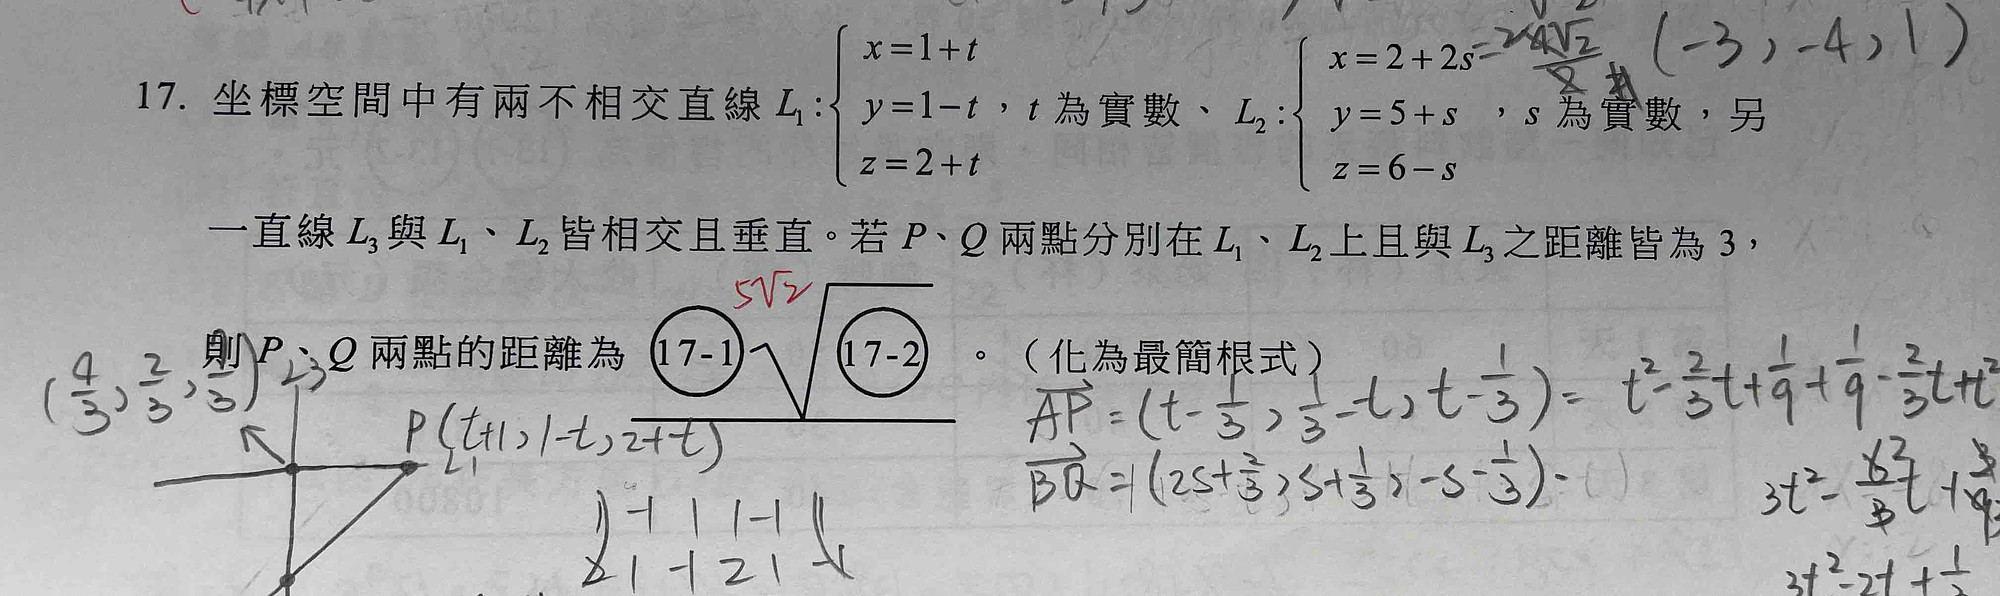 (-3, -4, 1)
17. 坐標空間中有兩不相交直線 L₁:{ x=1+t, y=1-t, z=2+t ,t 為實數、L₂:{ x=2+2s, y=5+s, z=6-s ,s 為實數,另
一直線 L₃ 與 L₁、L₂ 皆相交且垂直。若 P、Q 兩點分別在 L₁、L₂ 上且與 L₃ 之距離皆為 3,
5√2
則 P、Q 兩點的距離為 (17-1)√(17-2) 。(化為最簡根式)
L3
P(t+1, 1-t, 2+t)
L1
AP = (t-1/3, 1/3-t, t-1/3) = t²-2/3t+1/9+1/9-2/3t+t²
BQ = (2s+2/3, s+1/3, -s-1/3)
1 -1 1 1 -1 1
2 1 -1 2 1 -1